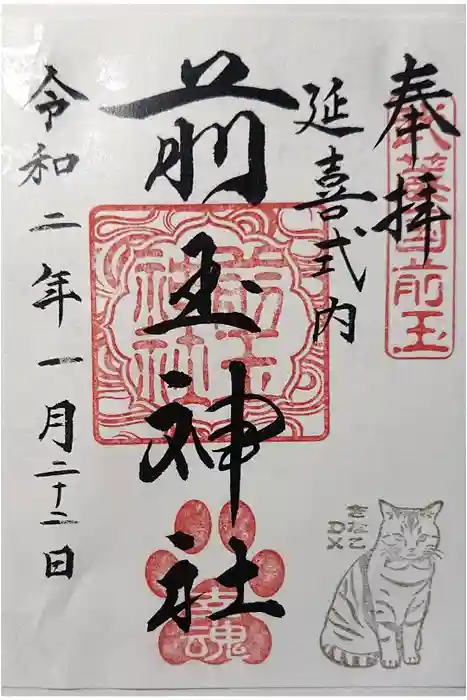 奉拝
武蔵国前玉
延喜式内
前玉神社
前玉神社
幸魂
令和二年一月二十二日
きなこ
DX